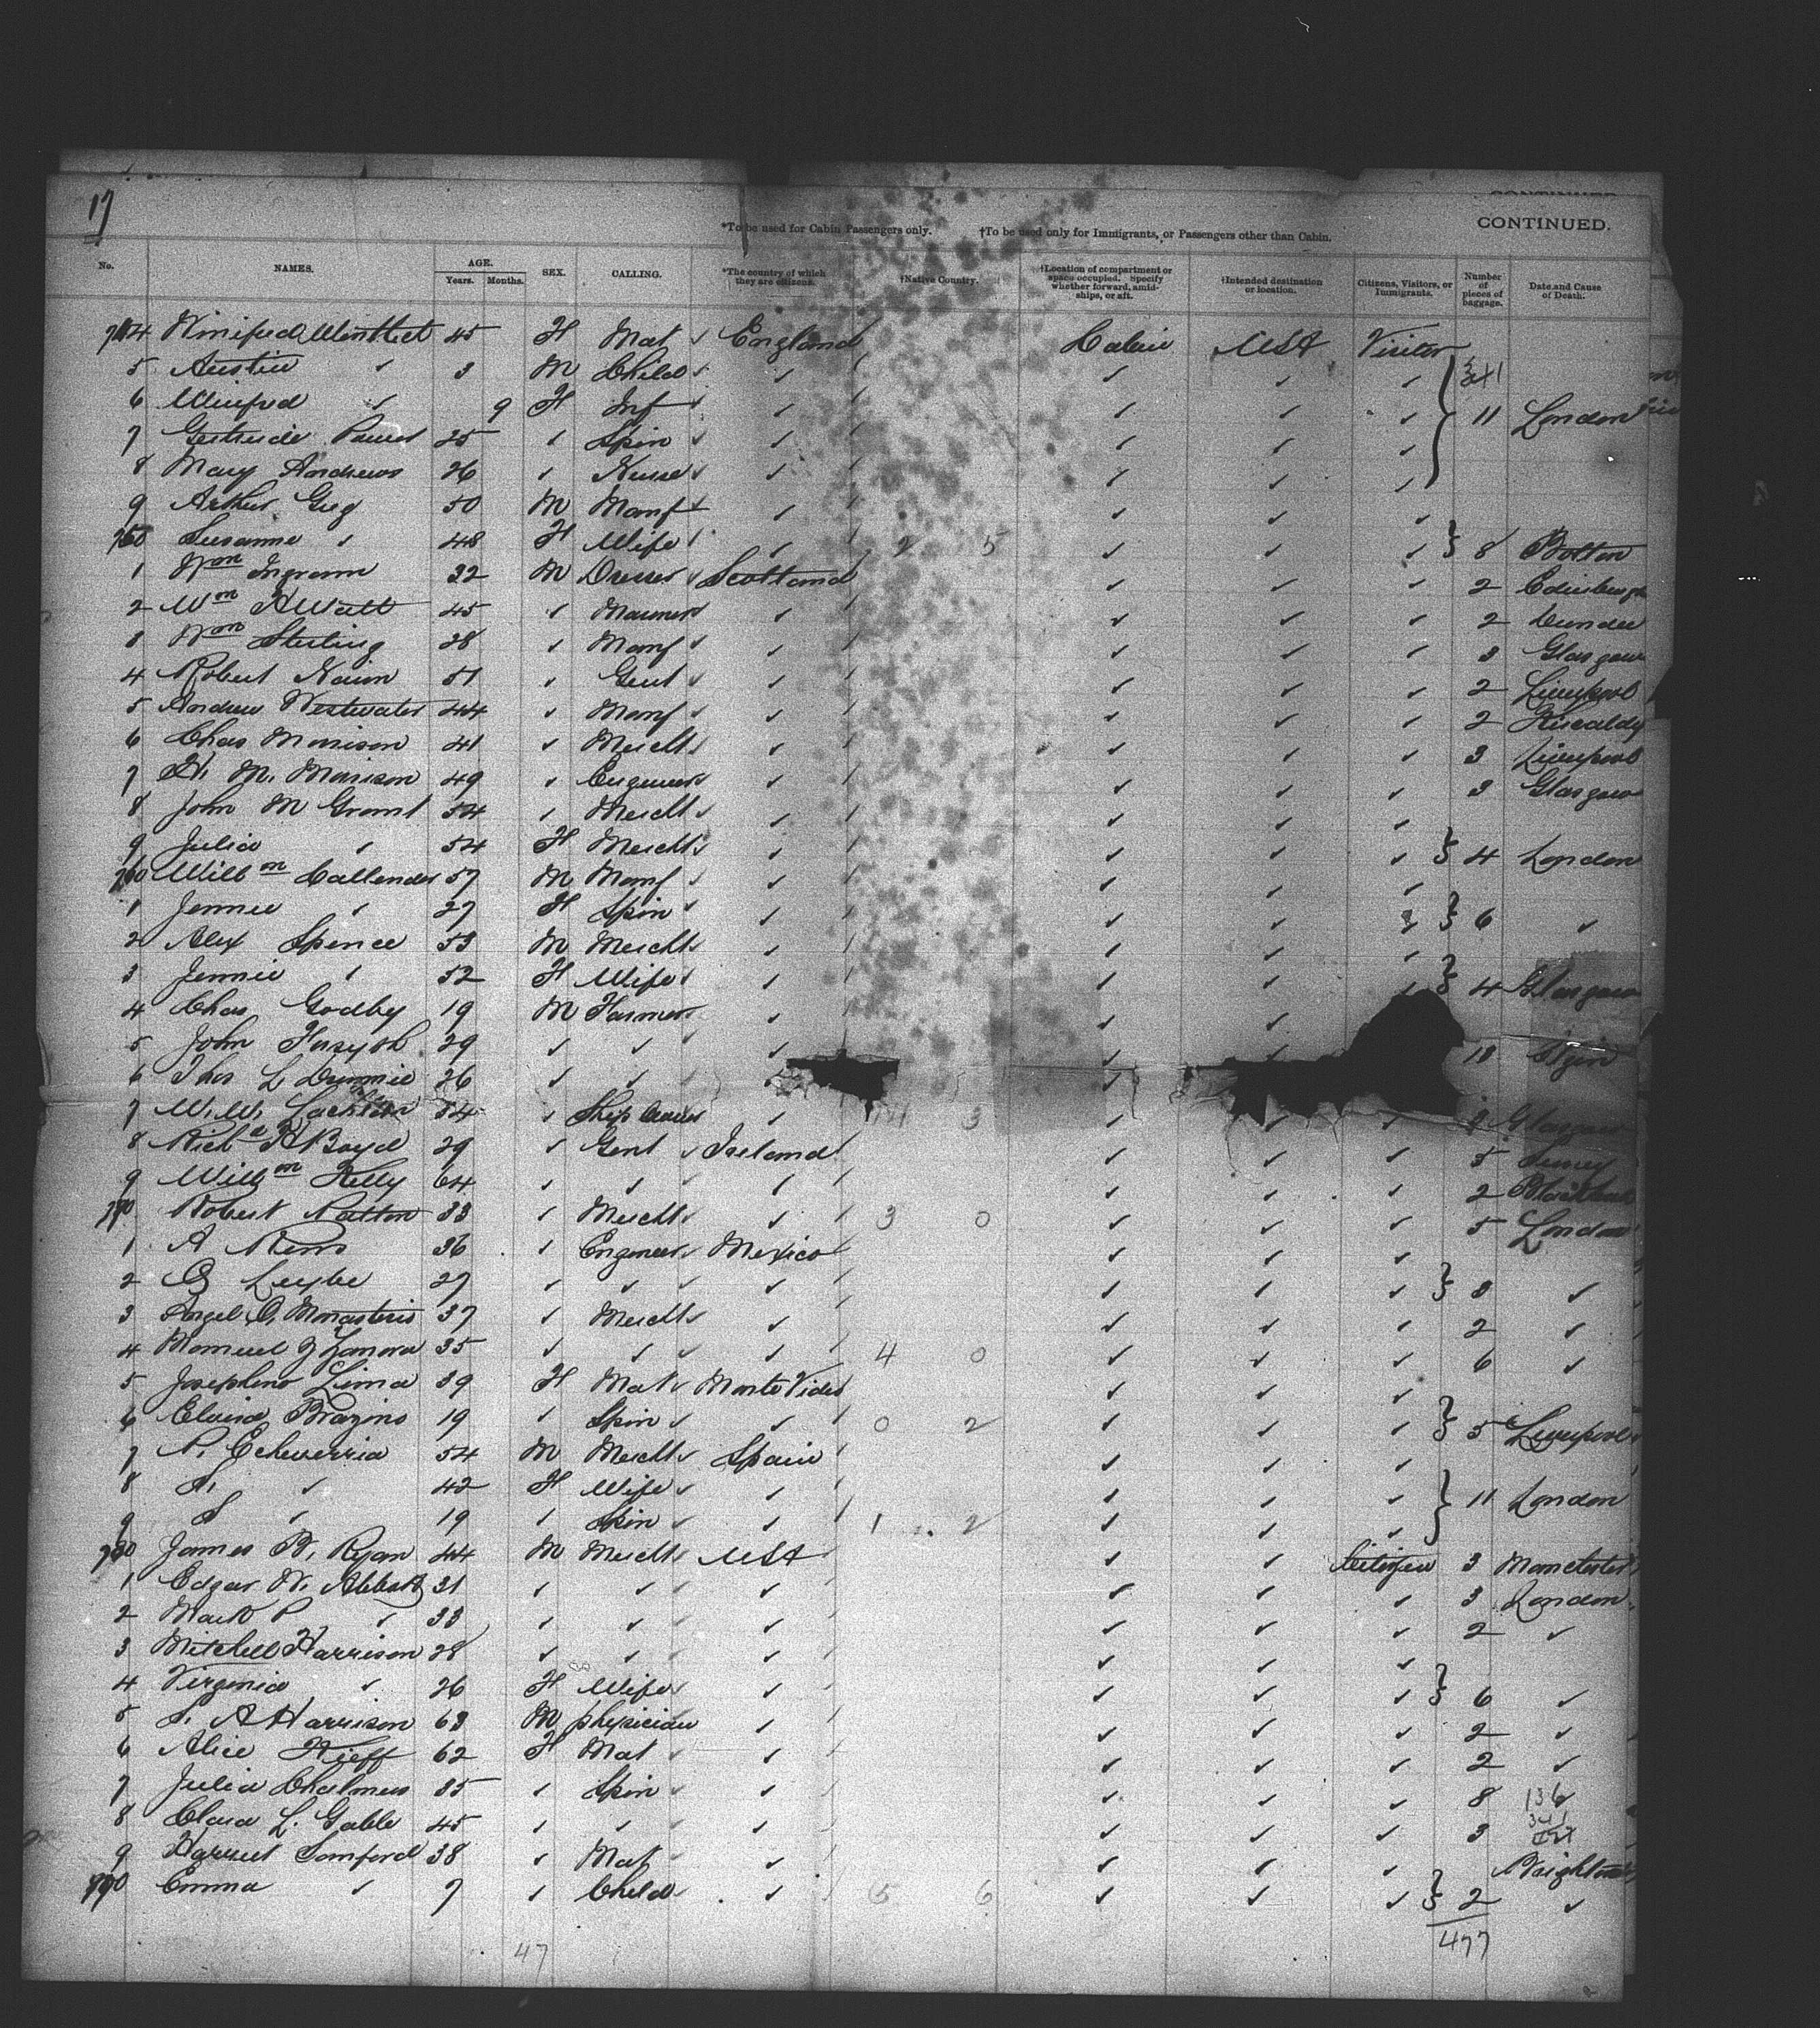 17
CONTINUED.
*To be used for Cabin Passengers only. †To be used only for Immigrants, or Passengers other than Cabin.
No. NAMES. AGE. Years. Months. SEX. CALLING. *The country of which they are citizens. †Native Country. †Location of compartment or space occupied. Specify whether forward, amidships, or aft. †Intended destination or location. Citizens, Visitors, or Immigrants. Number of pieces of baggage. Date and Cause of Death.
744 Winifred 45 F Mat England Cabin USA Visitor
5 Austin ✓ 3 M Child ✓ ✓ ✓ ✓
6 Winifred ✓ 9 F Inf ✓ ✓ ✓ ✓ 11 London
7 Gertrude 25 ✓ Spin ✓ ✓ ✓ ✓
8 Mary Andrews 26 ✓ Nurse ✓ ✓ ✓ ✓
9 Arthur Greg 50 M Manf ✓ ✓ ✓ ✓
750 Susanna ✓ 48 F Wife ✓ 2 5 ✓ ✓ ✓ 8 Bolton
1 Wm Ingram 32 M Scotland ✓ ✓ ✓ 2 Edinburgh
2 Wm H Watt 45 ✓ ✓ ✓ ✓ ✓ 2 Dundee
3 Wm Sterling 28 ✓ Manf ✓ ✓ ✓ ✓ 3 Glasgow
4 Robert Nairn 51 ✓ Gent ✓ ✓ ✓ ✓ 2 Liverpool
5 Andrew Westwater 44 ✓ Manf ✓ ✓ ✓ ✓ 2 Kircaldy
6 Chas Morrison 41 ✓ Mercht ✓ ✓ ✓ ✓ 3 Liverpool
7 H. M. Morrison 49 ✓ Engineer ✓ ✓ ✓ ✓ 3 Glasgow
8 John M Grant 54 ✓ Mercht ✓ ✓ ✓ ✓
9 Julia ✓ 54 F Mercht ✓ ✓ ✓ ✓ 4 London
760 Willm Callender 57 M Manf ✓ ✓ ✓ ✓
1 Jennie ✓ 27 F Spin ✓ ✓ ✓ ✓ 6 ✓
2 Alex Spence 53 M Mercht ✓ ✓ ✓ ✓
3 Jennie ✓ 52 F Wife ✓ ✓ ✓ ✓ 4 Glasgow
4 Chas Godby 19 M Farmer ✓ ✓ ✓
5 John Forsyth 29 ✓ ✓ ✓ ✓ ✓ 18 Elgin
6 Thos L 26 ✓ ✓ ✓ ✓
7 W. W. 54 ✓ Ship Owner ✓ 3 ✓ ✓ ✓ Glasgow
8 Richd H Boyd 29 ✓ Gent Ireland ✓ ✓ ✓ 5
9 Willm Kelly 64 ✓ ✓ ✓ ✓ ✓ ✓ 2
770 Robert Patton 33 ✓ Mercht ✓ 3 0 ✓ ✓ ✓ 5 London
1 A 36 ✓ Engineer Mexico ✓ ✓ ✓
2 27 ✓ ✓ ✓ ✓ ✓ ✓ 8 ✓
3 Angel O. Monasterio 37 ✓ Mercht ✓ ✓ ✓ ✓ 2 ✓
4 Manuel 35 ✓ ✓ ✓ 4 0 ✓ ✓ ✓ 6 ✓
5 Josephine Lima 39 F Mat Monte Video ✓ ✓ ✓
6 19 ✓ Spin ✓ 0 2 ✓ ✓ ✓ 5 Liverpool
7 P. Echeverria 54 M Mercht Spain ✓ ✓ ✓
8 ✓ 42 F Wife ✓ ✓ ✓ ✓ 11 London
9 S ✓ 19 ✓ Spin ✓ 1 2 ✓ ✓ ✓
780 James B. Ryan 44 M Mercht USA ✓ ✓ Citizen 3 Manchester
1 Edgar W. Abbott 31 ✓ ✓ ✓ ✓ ✓ ✓ 3 London
2 P ✓ 33 ✓ ✓ ✓ ✓ ✓ ✓ 2 ✓
3 Mitchell Harrison 28 ✓ ✓ ✓ ✓ ✓ ✓
4 Virginia ✓ 26 F Wife ✓ ✓ ✓ ✓ 6 ✓
5 A Harrison 63 M physician ✓ ✓ ✓ ✓ 2 ✓
6 Alice 62 F Mat ✓ ✓ ✓ ✓ 2 ✓
7 Julia Chalmers 35 ✓ Spin ✓ ✓ ✓ ✓ 8 136
8 Clara L. Gable 45 ✓ ✓ ✓ ✓ ✓ ✓ 3 341
9 Harriet Sanford 38 ✓ Mat ✓ ✓ ✓ ✓ Brighton
790 Emma ✓ 7 ✓ Child ✓ 5 6 ✓ ✓ ✓ 2 ✓
47
477